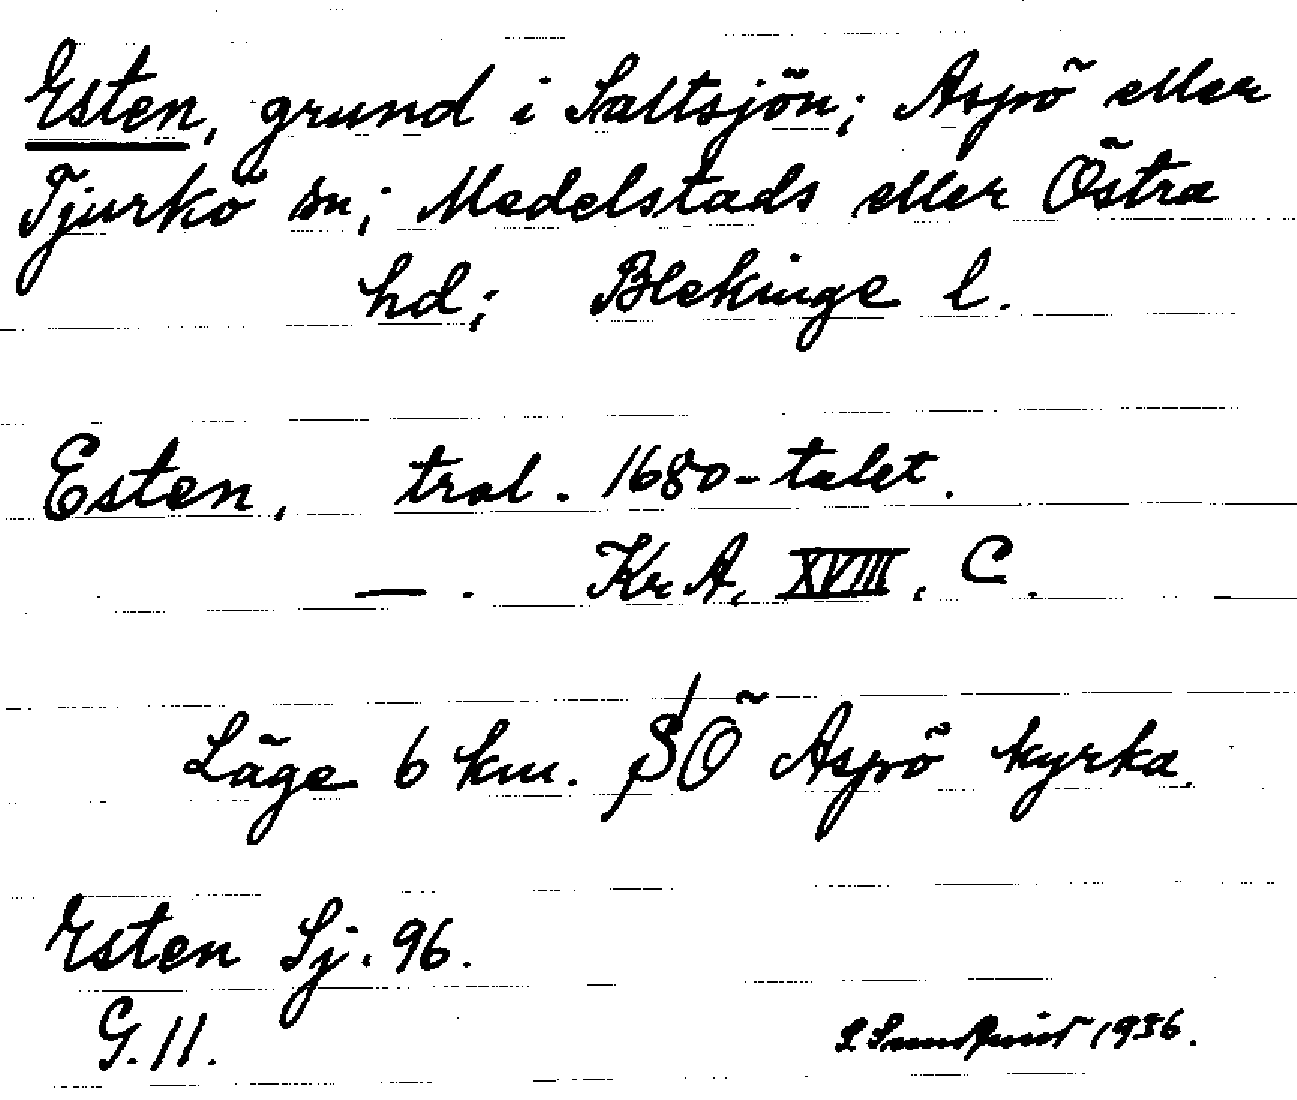 Esten, grund i Saltsjön; Aspö eller
Tjurkö sn; Medelstads eller Östra
hd; Blekinge l.
Esten, trol. 1680-talet.
— . KrA, XVIII, C.
Läge 6 km. SÖ Aspö kyrka.
Esten Sj. 96.
G. 11.
S Sundquist 1936.